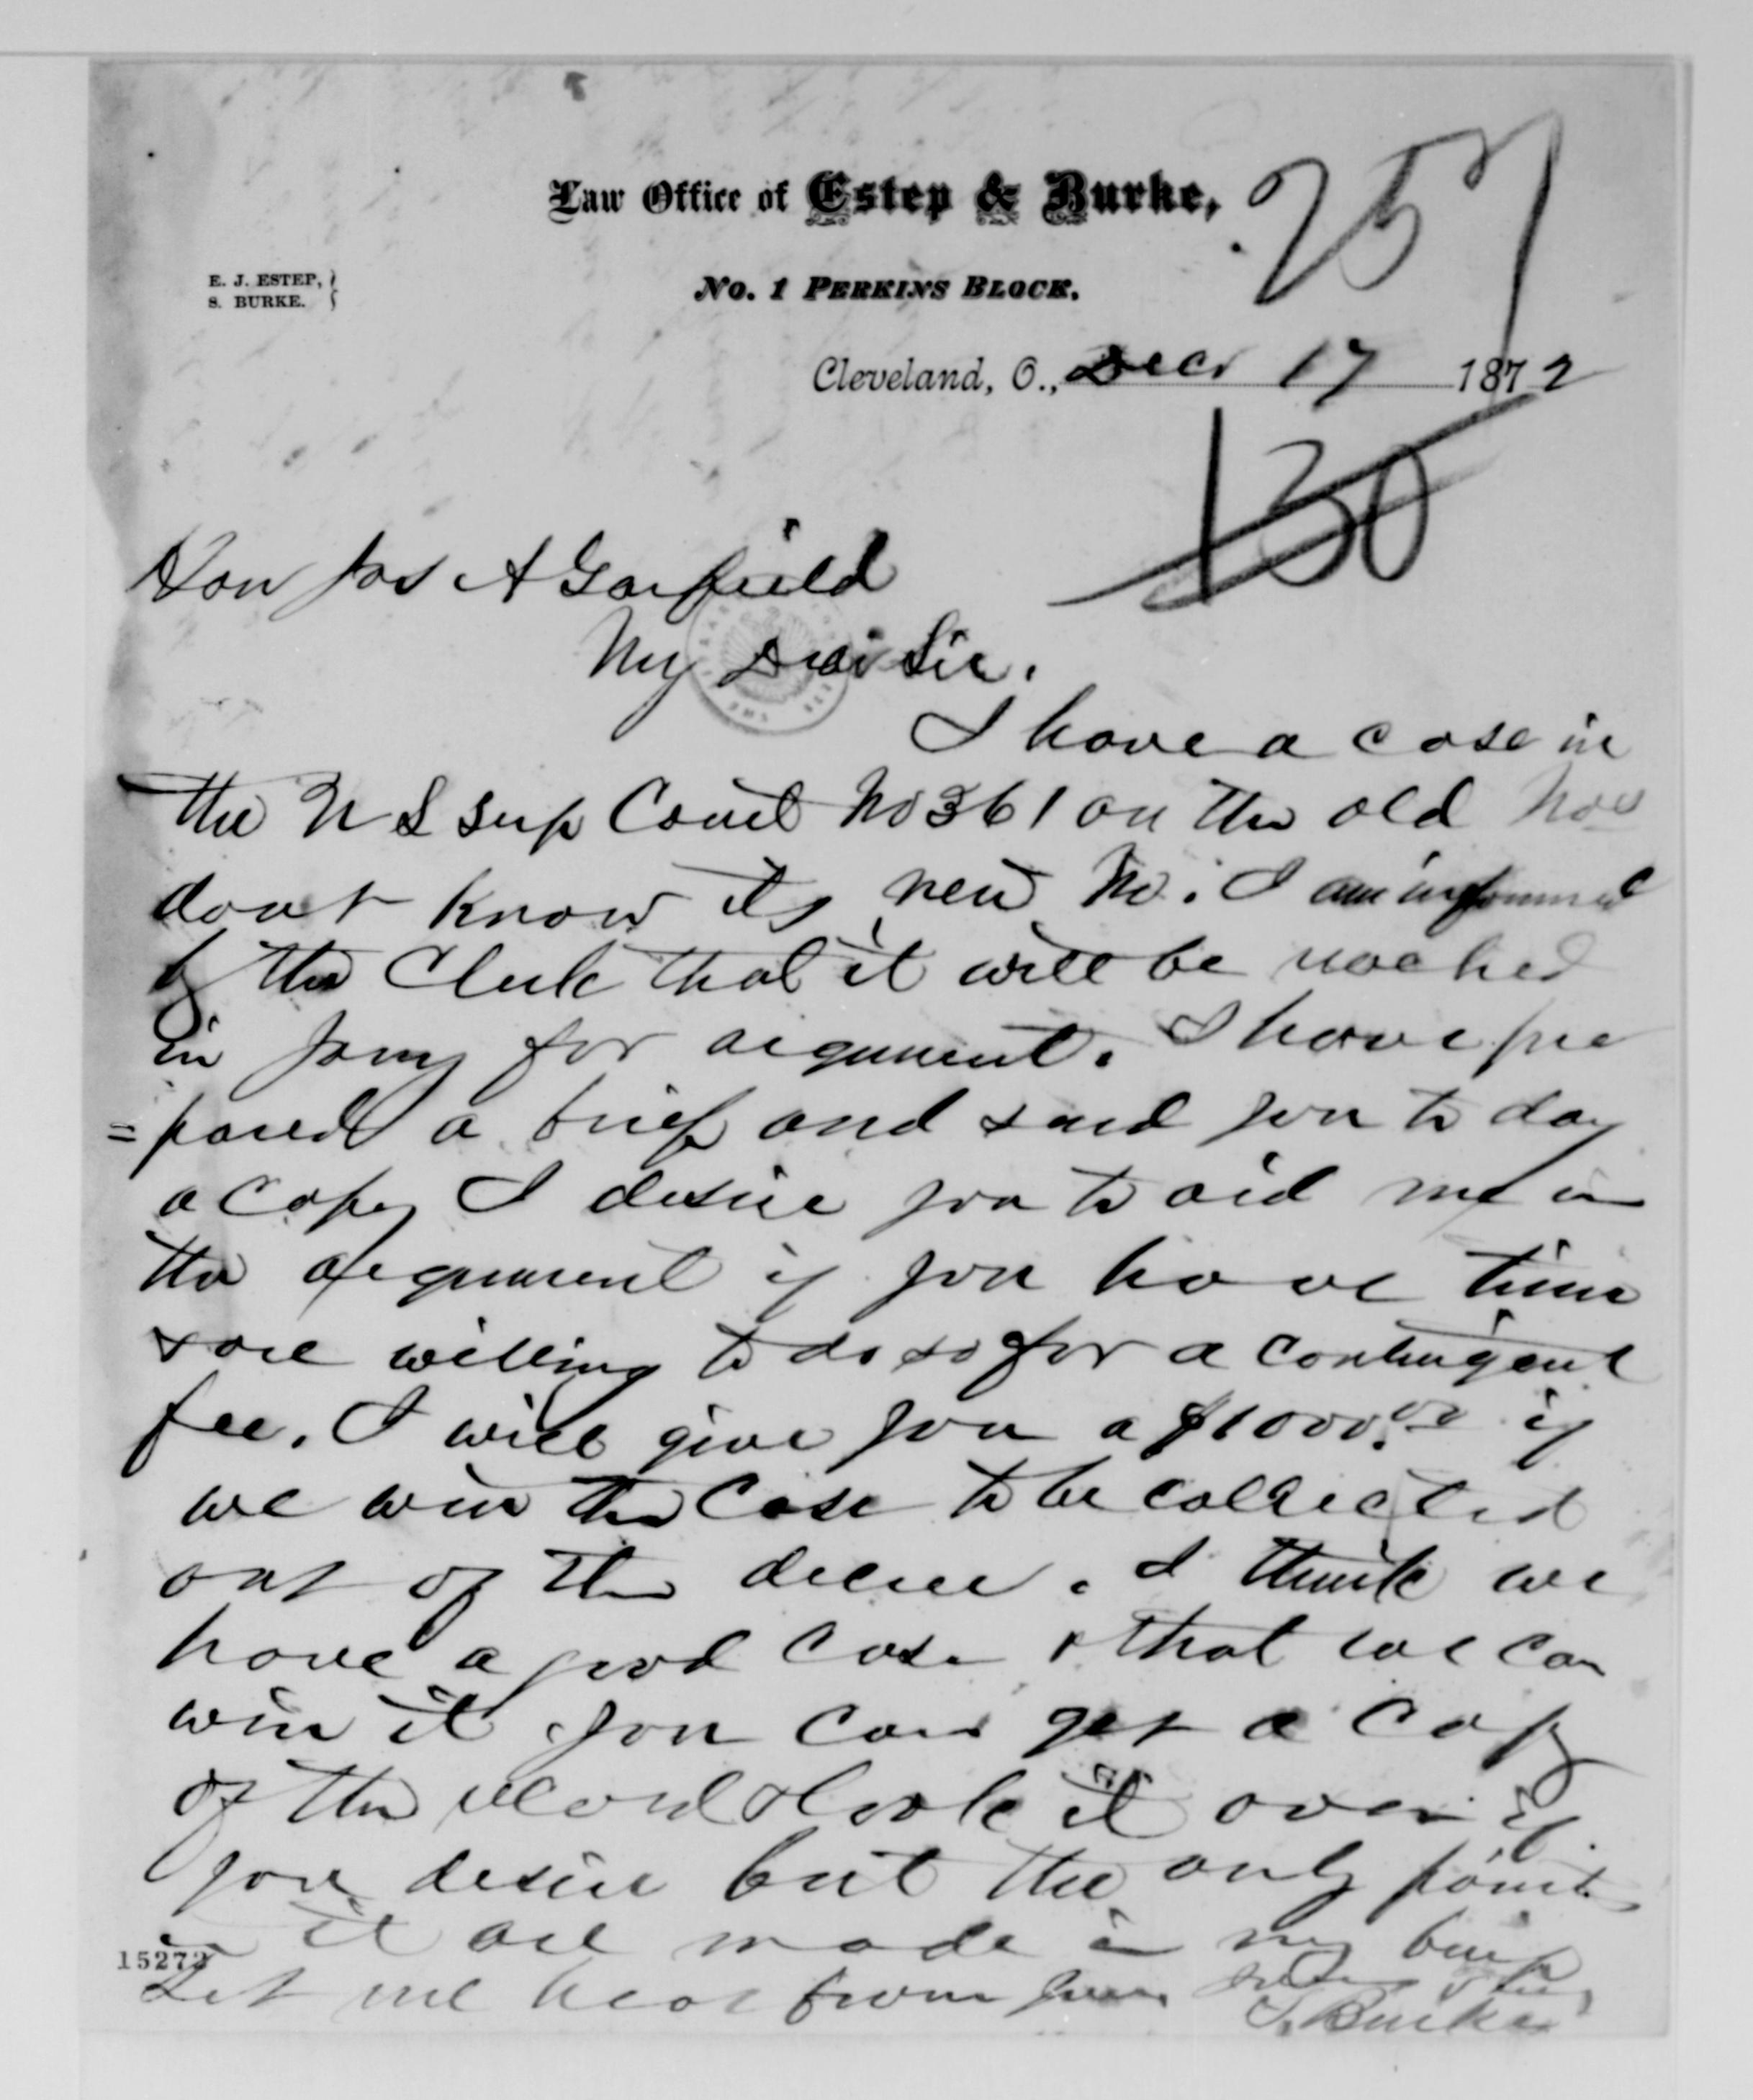 257
Law Office of Estep & Burke,
E. J. ESTEP,
S. BURKE.
No. 1 PERKINS BLOCK.
Cleveland, O., Decr 17 1872
130
Hon Jas A Garfield
My Dear Sir.
I have a case in
the U S Sup Court No 361 on the old Nos
dont know its new No. I am informed
by the Clerk that it will be reached
in Jany for argument. I have pre
=pared a brief and send you to day
a copy I desire you to aid me in
the argument if you have time
& are willing to do so for a contingent
fee. I will give you a $1000.00 if
we win the case to be collected
out of the decree. I think we
have a good case & that we can
win it you can get a copy
of the record & look it over if
you desire but the only points
in it are made in my brief
Let me hear from you
S. Burke
15272